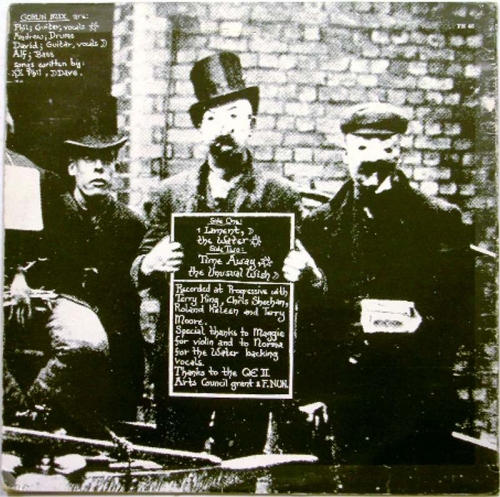 GOBLIN MIX are:
Phil; Guitar, vocals
Andrew; Drums
David; Guitar, vocals D
Alf; Bass
songs written by:
Phil, D Dave.
Side One:
1 Lament, D
the Water
Side Two:
Time Away,
the Unusual Wish D
Recorded at Progressive with
Terry King, Chris Sheehan,
Roland and Terry
Moore.
Special thanks to Maggie
for violin and to Norma
for the Water backing
vocals.
Thanks to the QE II
Arts Council grant & F.NUN.